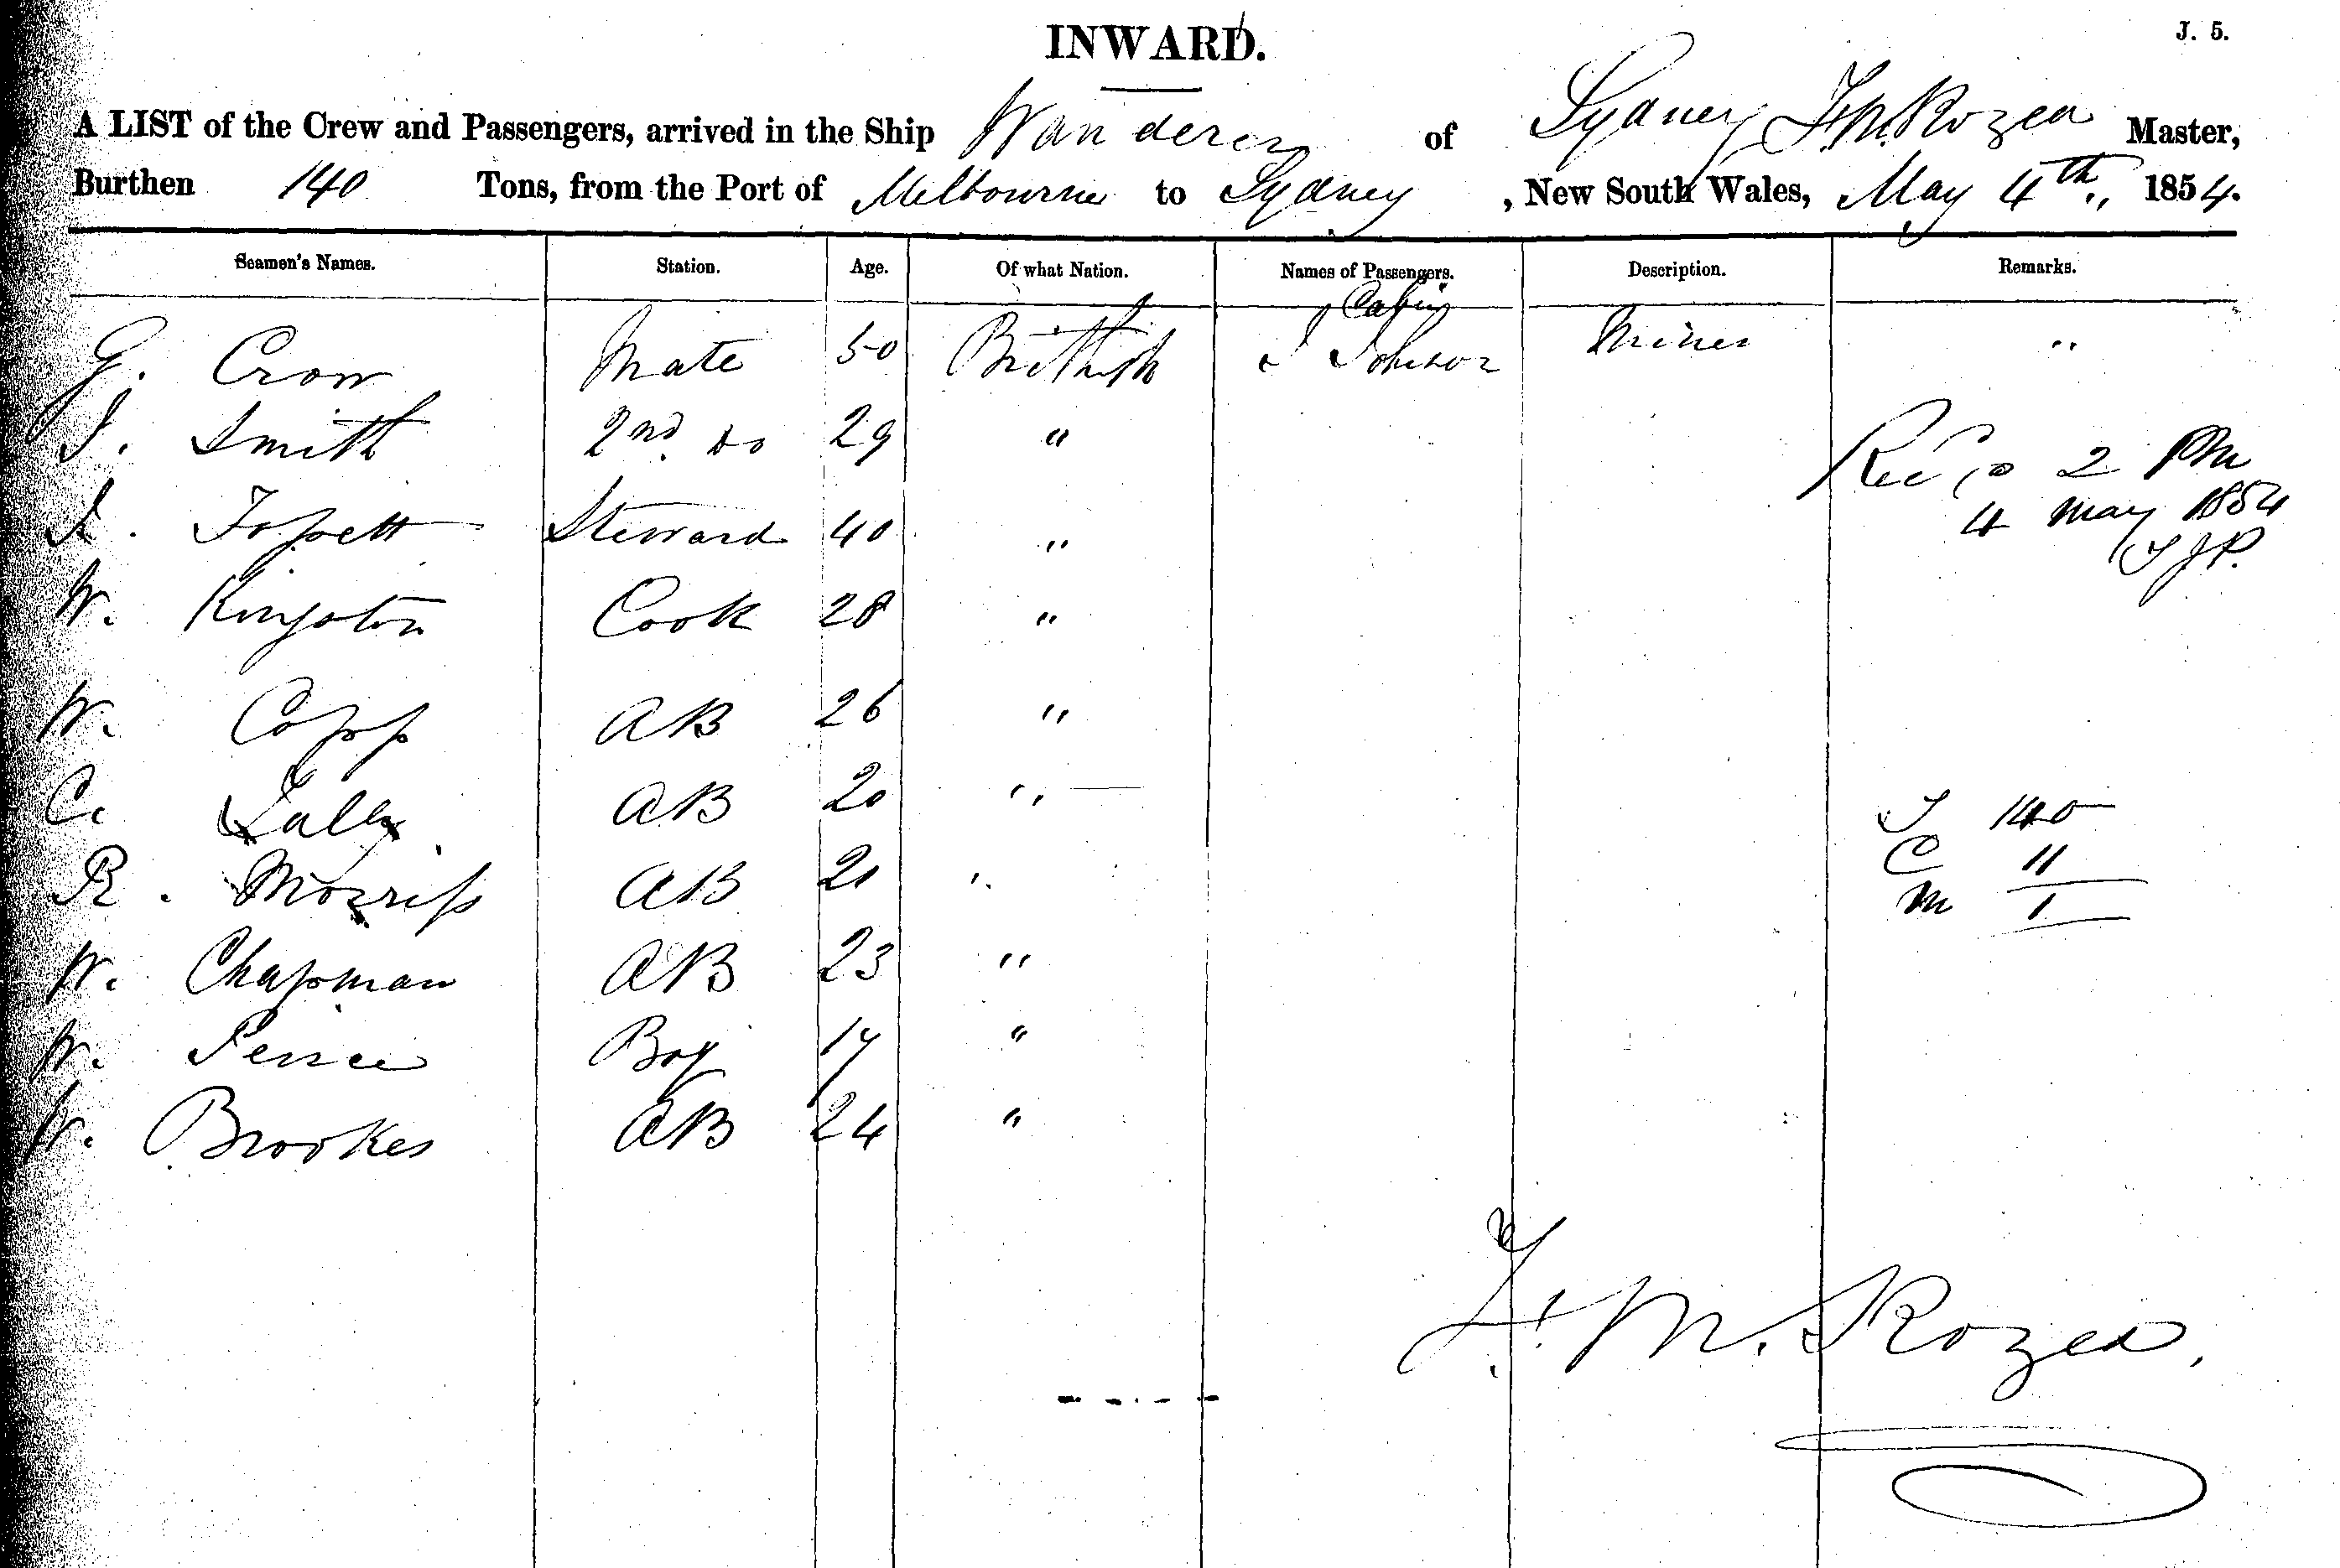 J. 5.
INWARD.
A LIST of the Crew and Passengers, arrived in the Ship Wanderer of Sydney F. M. Rozea Master,
Burthen 140 Tons, from the Port of Melbourne to Sydney, New South Wales, May 4th., 1854.
Seamen's Names. Station. Age. Of what Nation. Names of Passengers. Description. Remarks.
Cabin
G. Crow Mate 50 British J Johnson Miner "
J. Smith 2nd. Do 29 "
Rec 2 PM
4 May 1854
J. Fossett Steward 40 "
W. Kingston Cook 28 "
W. Copp AB 26 "
C. Lally AB 20 "
T 140
R. Morriss AB 21 "
C 11
M 1
W. Chapman AB 23 "
W. Boy 17 "
W. Brookes AB 24 "
F. M. Rozea.